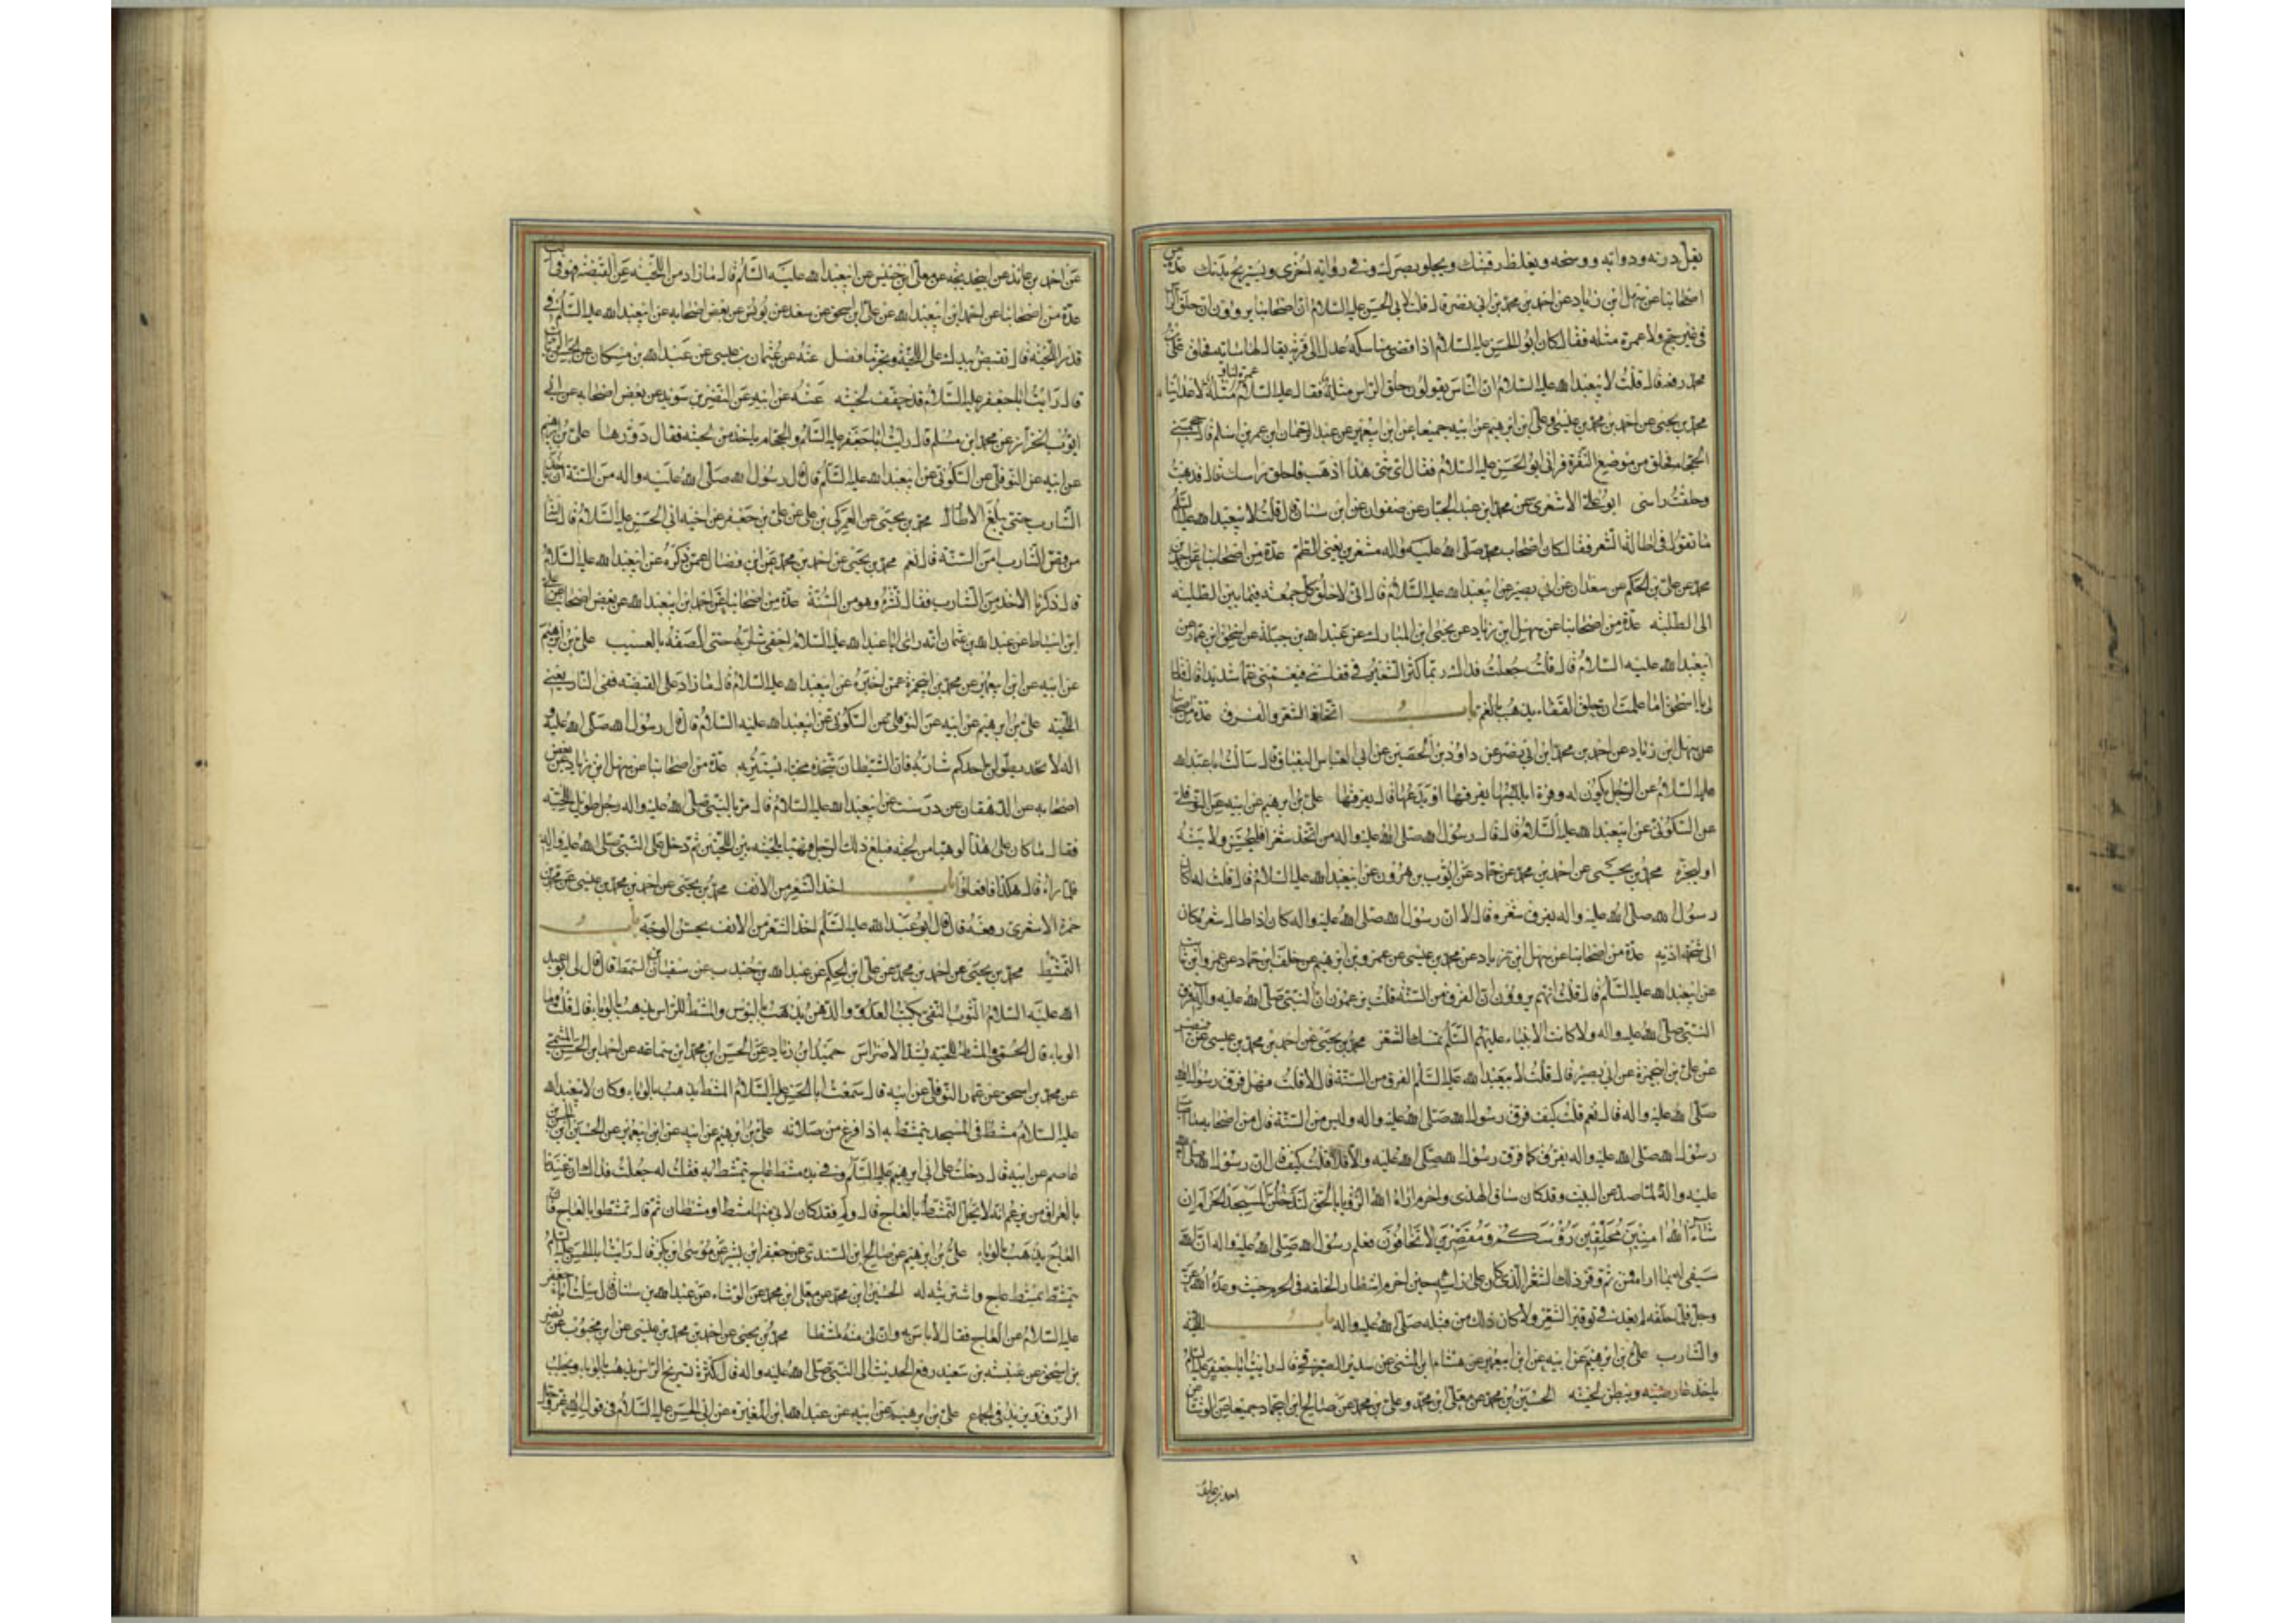 يقل درنه ودوابه ووسخه ويغلظ رقبتك ويجلو بصرك وفي رواية اخرى ويستريح بدنك عدة من
اصحابنا عن سهل ابن زياد عن احمد بن محمد بن ابي نصر قال قلت لابي الحسن عليه السلام ان اصحابنا يروون ان حلق الراس
في غير حج ولا عمرة مثله فقال كان ابو الحسن عليه السلام اذا قضى مناسكه عدل الى قرية يقال لها سايه فحلق علي بن
محمد رفعه قال قلت لابيعبدالله عليه السلام ان الناس يقولون حلق الراس مثلة فقال عليه السلام عمرة لنا ومثلة لاعدائنا
محمد بن يحيى عن احمد بن محمد بن عيسى وعلي ابن ابرهيم عن ابيه جميعا عن ابن ابيعمير عن عبد الرحمان ابن عمر بن اسلم قال حجمني
الحجام فحلق من موضع النقرة فراني ابو الحسن عليه السلام فقال اي شيء هذا اذهب فاحلق راسك قال فذهبت
وحلقت راسي ابو علي الاشعري عن محمد ابن عبد الجبار عن صفوان عن ابن سنان قال قلت لابيعبدالله عليه السلم
ما تقول في اطالة الشعر فقال كان اصحاب محمد صلى الله عليه واله مشعرين يعني الطم عدة من اصحابنا عن احمد بن
محمد عن علي بن الحكم عن سعدان عن ابي بصير عن ابيعبدالله عليه السلام قال اني لاحلق كل جمعة فيما بين الطلية
الى الطلية عدة من اصحابنا عن سهل ابن زياد عن يحيى ابن المبارك عن عبدالله بن جبلة عن اسحق ابن عمار عن
ابيعبدالله عليه السلام قال قلت جعلت فداك ربما كثر الشعر في قفاي فيغمني غما شديدا قال فقال
لي يا اسحق اما علمت ان حلق القفاء يذهب بالغم باب اتخاذ الشعر والفرق عدة من اصحابنا
عن سهل ابن زياد عن احمد بن محمد ابن ابي نصر عن داود بن الحصين عن ابي العباس البقباق قال سالت ابا عبدالله
عليه السلام عن الرجل يكون له وفرة ايفرقها او يدعها قال يفرقها علي بن ابرهيم عن ابيه عن النوفلي
عن السكوني عن ابيعبدالله عليه السلام قال قال رسول الله صلى الله عليه واله من اتخذ شعرا فليحسن ولايته
او ليجزه محمد بن يحيى عن احمد بن محمد عن حماد عن ايوب بن هرون عن ابيعبدالله عليه السلام قال قلت له اكان
رسول الله صلى الله عليه واله يفرق شعره قال لا ان رسول الله صلى الله عليه واله كان اذا طال شعره كان
الى شحمة اذنيه عدة من اصحابنا عن سهل ابن زياد عن محمد بن عيسى عن عمرو بن ابرهيم عن خلف ابن حماد عن عمرو ابن ثابت
عن ابيعبدالله عليه السلم قال قلت انهم يروون ان الفرق من السنة قلت يزعمون ان النبي صلى الله عليه واله فرق
النبي صلى الله عليه واله ولا كانت الانبياء عليهم السلم تمسك الشعر محمد بن يحيى عن احمد بن محمد بن عيسى عن
عن علي بن ابيحمزة عن ابي بصير قال قلت لابيعبدالله عليه السلم الفرق من السنة قال لا قلت فهل فرق رسول الله
صلى الله عليه واله قال نعم قلت كيف فرق رسول الله صلى الله عليه واله وليس من السنة قال من اصابه ما اصاب
رسول الله صلى الله عليه واله يفرق كما فرق رسول الله صلى الله عليه والا فلا قلت كيف قال ان رسول الله صلى الله
عليه واله لما صد عن البيت وقد كان ساق الهدي واحرم اراه الله الرؤيا بالحق لتدخلن المسجد الحرام ان
شاء الله امنين محلقين رؤسكم ومقصرين لا تخافون فعلم رسول الله صلى الله عليه واله ان الله
سيفي له بما اراه فمن ثم وفر ذلك الشعر الذي كان على راسه حين احرم انتظارا لحلقه في الحرم حيث وعده الله عز
وجل فلما حلقه لم يعد في توفير الشعر ولا كان ذلك من قبله صلى الله عليه واله باب اللحية
والشارب علي بن ابرهيم عن ابيه عن ابن ابيعمير عن هشام ابن المثنى عن سدير الصيرفي قال رايت ابا جعفر عليه السلم
ياخذ عارضيه ويبطن لحيته الحسين بن محمد عن معلى ابن محمد وعلي بن محمد عن صالح ابن ابي حماد جميعا عن الوشاء عن
احمد بن عايذ
عن احمد بن عائذ عن ابيخديجه عن معلى ابن خنيس عن ابيعبدالله عليه السلام قال ما زاد من اللحية عن القبضة فهو في النار
عدة من اصحابنا عن احمد ابن ابيعبدالله عن علي ابن اسحق عن سعد عن يونس عن بعض اصحابه عن ابيعبدالله عليه السلم في
قدر اللحية قال تقبض بيدك على اللحية وتجز ما فضل عنه عن عثمان بن عيسى عن عبدالله بن مسكان عن الحسن الزيات
قال رايت ابا جعفر عليه السلام قد خفف لحيته عنه عن ابيه عن النضر بن سويد عن بعض اصحابه عن ابي
ايوب الخزاز عن محمد ابن مسلم قال رايت ابا جعفر عليه السلم والحجام ياخذ من لحيته فقال دورها علي بن ابرهيم
عن ابيه عن النوفلي عن السكوني عن ابيعبدالله عليه السلم قال قال رسول الله صلى الله عليه واله من السنة ان ياخذ
الشارب حتى يبلغ الاطار محمد بن يحيى عن العمركي بن علي عن علي بن جعفر عن اخيه ابي الحسن عليه السلام قال سالته
من قص الشارب امن السنة قال نعم محمد بن يحيى عن احمد بن محمد عن ابن فضال عمن ذكره عن ابيعبدالله عليه السلام
قال ذكرنا الاخذ من الشارب فقال نشره وهو من السنة عدة من اصحابنا عن احمد ابن ابيعبدالله عن بعض اصحابه عن علي
ابن اسباط عن عبدالله بن عثمان انه راى ابا عبدالله عليه السلام احفى شاربه حتى الصقه بالعسيب علي بن ابرهيم
عن ابيه عن ابن ابيعمير عن محمد بن ابيحمزة عمن اخبره عن ابيعبدالله عليه السلام قال ما زاد على القبضه ففي النار يعني
اللحية علي بن ابرهيم عن ابيه عن النوفلي عن السكوني عن ابيعبدالله عليه السلام قال قال رسول الله صلى الله عليه و
اله لا يطولن احدكم شاربه فان الشيطان يتخذه مخبا يستتر به عدة من اصحابنا عن سهل ابن زياد عن بعض
اصحابه عن الدهقان عن درست عن ابيعبدالله عليه السلام قال مر بالنبي صلى الله عليه واله رجل طويل اللحية
فقال ما كان على هذا لو هيا من لحيته فبلغ ذلك الرجل فهيا لحيته بين اللحيتين ثم دخل على النبي صلى الله عليه واله
فلما راه قال هكذا فافعلوا باب اخذ الشعر من الانف محمد بن يحيى عن احمد بن محمد بن عيسى عن محمد بن
حمزة الاشعري رفعه قال قال ابو عبدالله عليه السلم اخذ الشعر من الانف يحسن الوجه باب
التمشط محمد بن يحيى عن احمد بن محمد عن علي ابن الحكم عن عبدالله بن جندب عن سفيان ابن السمط قال قال لي ابو عبد
الله عليه السلام الثوب النقي يكبت العدو والدهن يذهب بالبؤس والمشط للراس يذهب بالوباء قال قلت وما
الوباء قال الحمى والمشط للحية يشد الاضراس حميد ابن زياد عن الحسن ابن محمد ابن سماعه عن احمد ابن الحسن الميثمي
عن محمد بن اسحق عن عمار النوفلي عن ابيه قال سمعت ابا الحسن عليه السلام المشط يذهب بالوباء وكان لابيعبدالله
عليه السلام مشط في المسجد يتمشط به اذا فرغ من صلاته علي بن ابرهيم عن ابيه عن ابن ابيعمير عن الحسين ابن الحسن بن
عاصم عن ابيه قال دخلت على ابي ابرهيم عليه السلم وفي يده مشط عاج يتمشط به فقلت له جعلت فداك ان عندنا
بالعراق من يزعم انه لا يحل التمشط بالعاج قال ولم فقد كان لابي منها مشط او مشطان ثم قال تمشطوا بالعاج فان
العاج يذهب بالوباء علي بن ابرهيم عن صالح ابن السندي عن جعفر ابن بشير عن موسى ابن بكر قال رايت ابا الحسن عليه السلم
يتمشط بمشط عاج واشتريته له الحسين ابن محمد عن معلى ابن محمد عن الوشاء عن عبدالله بن سنان قال سئلت ابا جعفر
عليه السلام عن العاج فقال لا باس به وان لي منه لمشطا محمد بن يحيى عن احمد بن محمد بن عيسى عن ابن محبوب عن نصر
بن اسحق عن عنبسه بن سعيد رفع الحديث الى النبي صلى الله عليه واله قال كثرة تسريح الراس يذهب بالوباء ويجلب
الرزق ويزيد في الجماع علي بن ابرهيم عن ابيه عن عبدالله ابن المغيرة عن ابي الحسن عليه السلام في قول الله عز وجل